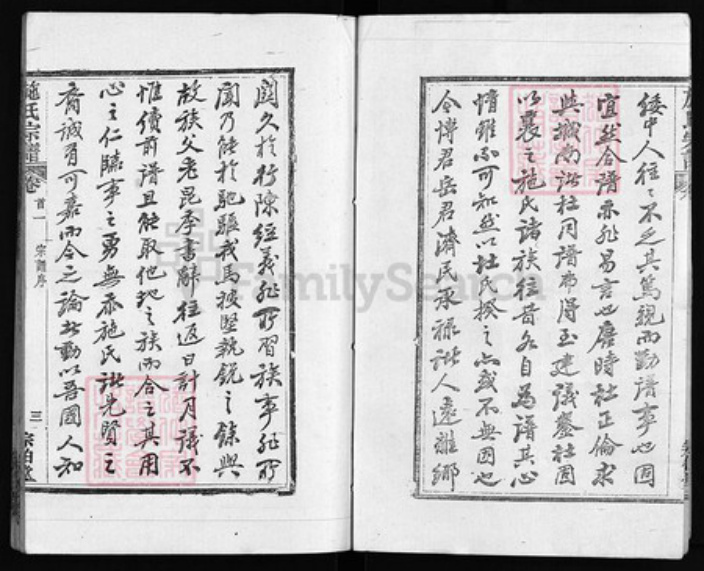 綾中人往〻不乏其篤親而勤譜事也固
宜然合譜亦非易言也唐時杜正倫求
與城南諸杜同譜弗得至建議鑿杜固
以襄之施氏諸族往昔各自為譜其心
情雖不可知然以杜氏揆之亦或不無因也
今博君岳君濟民承祿諸人遠離鄉
關久於行陳經義非所習族事非所
聞乃能於馳驅戎馬被堅執銳之餘與
故族父老昆季書辭往返日計月議不
惟續前譜且能取他地之族而合之其用
心之仁臨事之勇無亦施氏諸先賢之
裔誠有可嘉而今之論者動以吾國人知
施氏宗譜
卷首一
宗譜序
三
FamilySearch